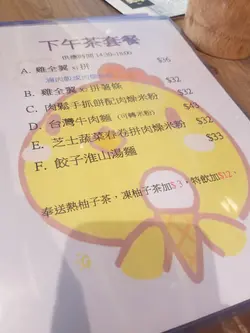 下午茶套餐
供應時間 14:30-18:00
A. 雞全翼 拼 $36
B. 雞全翼 拼薯條 $32
C. 肉鬆手抓餅配肉燥米粉 $32
D. 台灣牛肉麵 (可轉米粉) $43
E. 芝士蔬菜春卷拼肉燥米粉 $32
F. 餃子淮山湯麵 $33
奉送熱柚子茶，凍柚子茶加$3，特飲加$12。